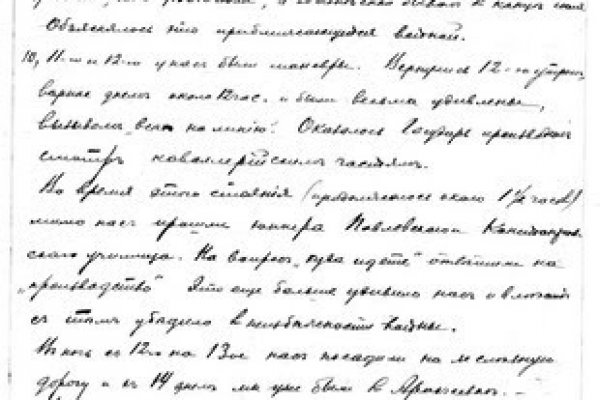 Объяснялось это приближающейся войной.
10, 11-го и 12-го у нас были маневры. Вернулись 12-го утром,
вернее днем около 12 час. и были весьма удивлены,
вызывом „всех на линию". Оказалось Государь производил
смотр кавалерийским частям.
Во время этого стояния (продолжалось около 1½ часов)
мимо нас прошли юнкера Павловского
ского училища. На вопрос „куда идете" ответили на
„производство" Это еще больше удивило нас и
с тем убедило в неизбежности войны.
В ночь с 12-го на 13-ое нас посадили на железную
дорогу и в 14 днем мы уже были в